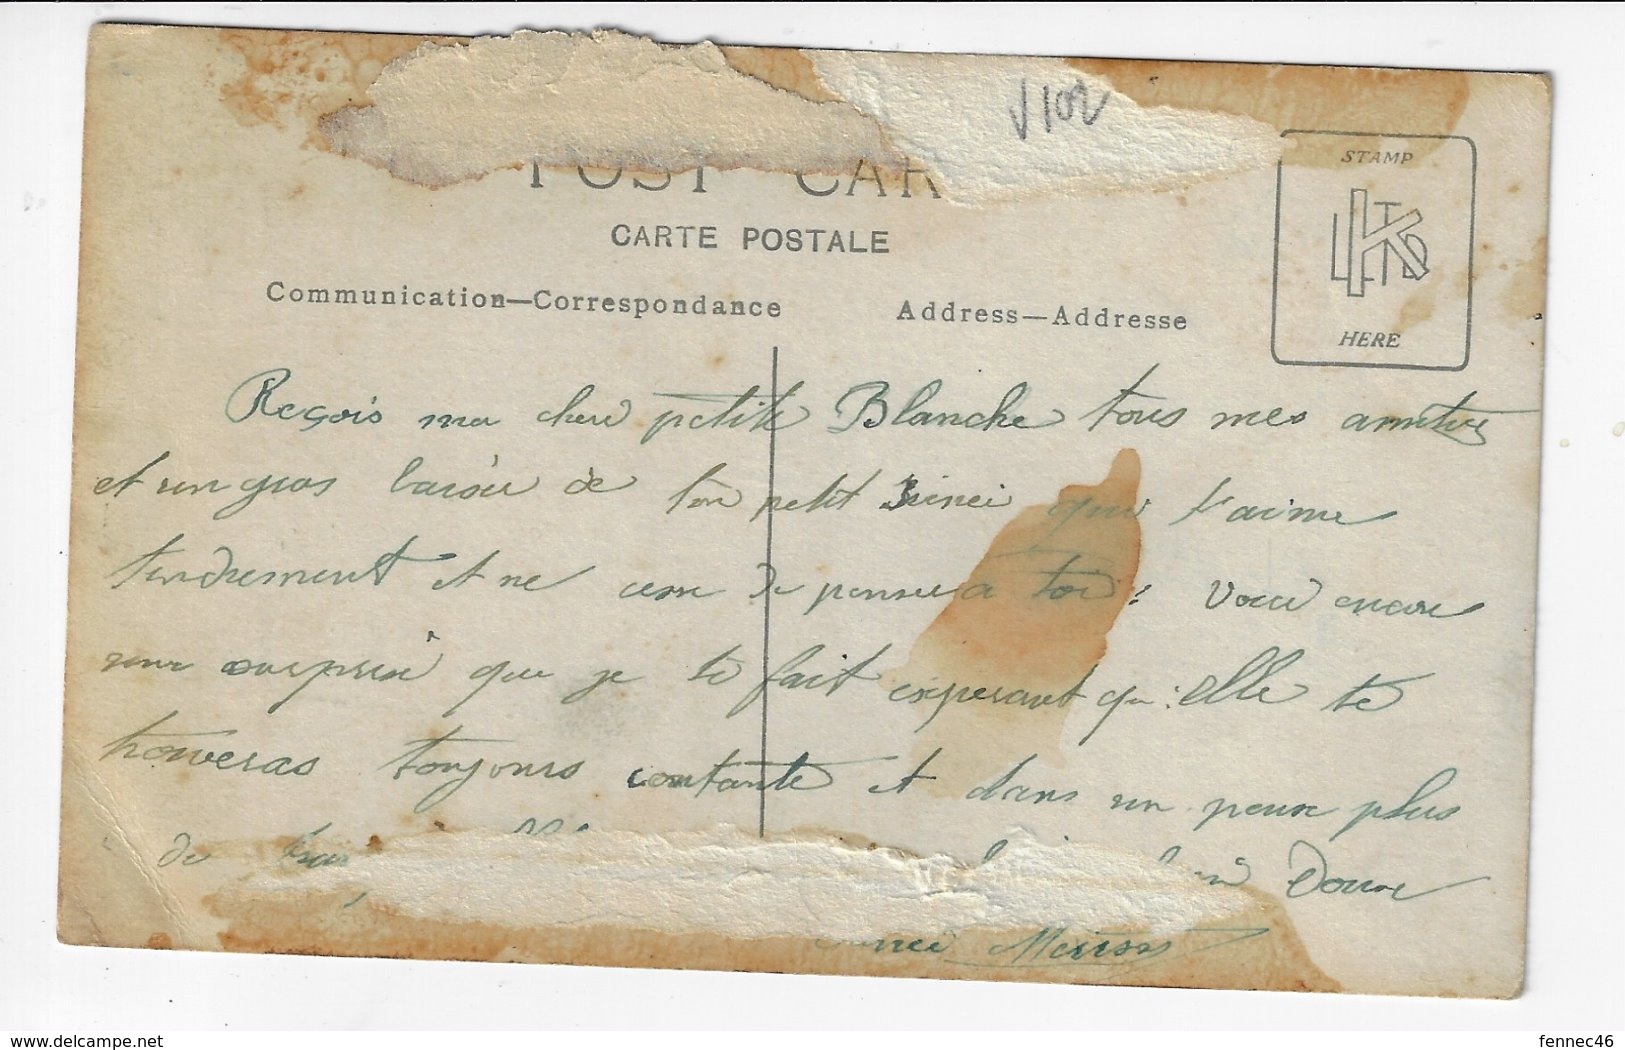 V102
POST CAR
CARTE POSTALE
STAMP
K LTD
HERE
Communication—Correspondance
Address—Addresse
Reçois ma cher petite Blanche tous mes amities
et un gros baisér de ton petit qui t'aime
tendrement et ne cesse de penser a toi: Voici encore
une surprise que je te fait esperant qu'elle te
trouveras toujours contante et dans un peux plus
de
Meusas
delcampe.net
fennec46